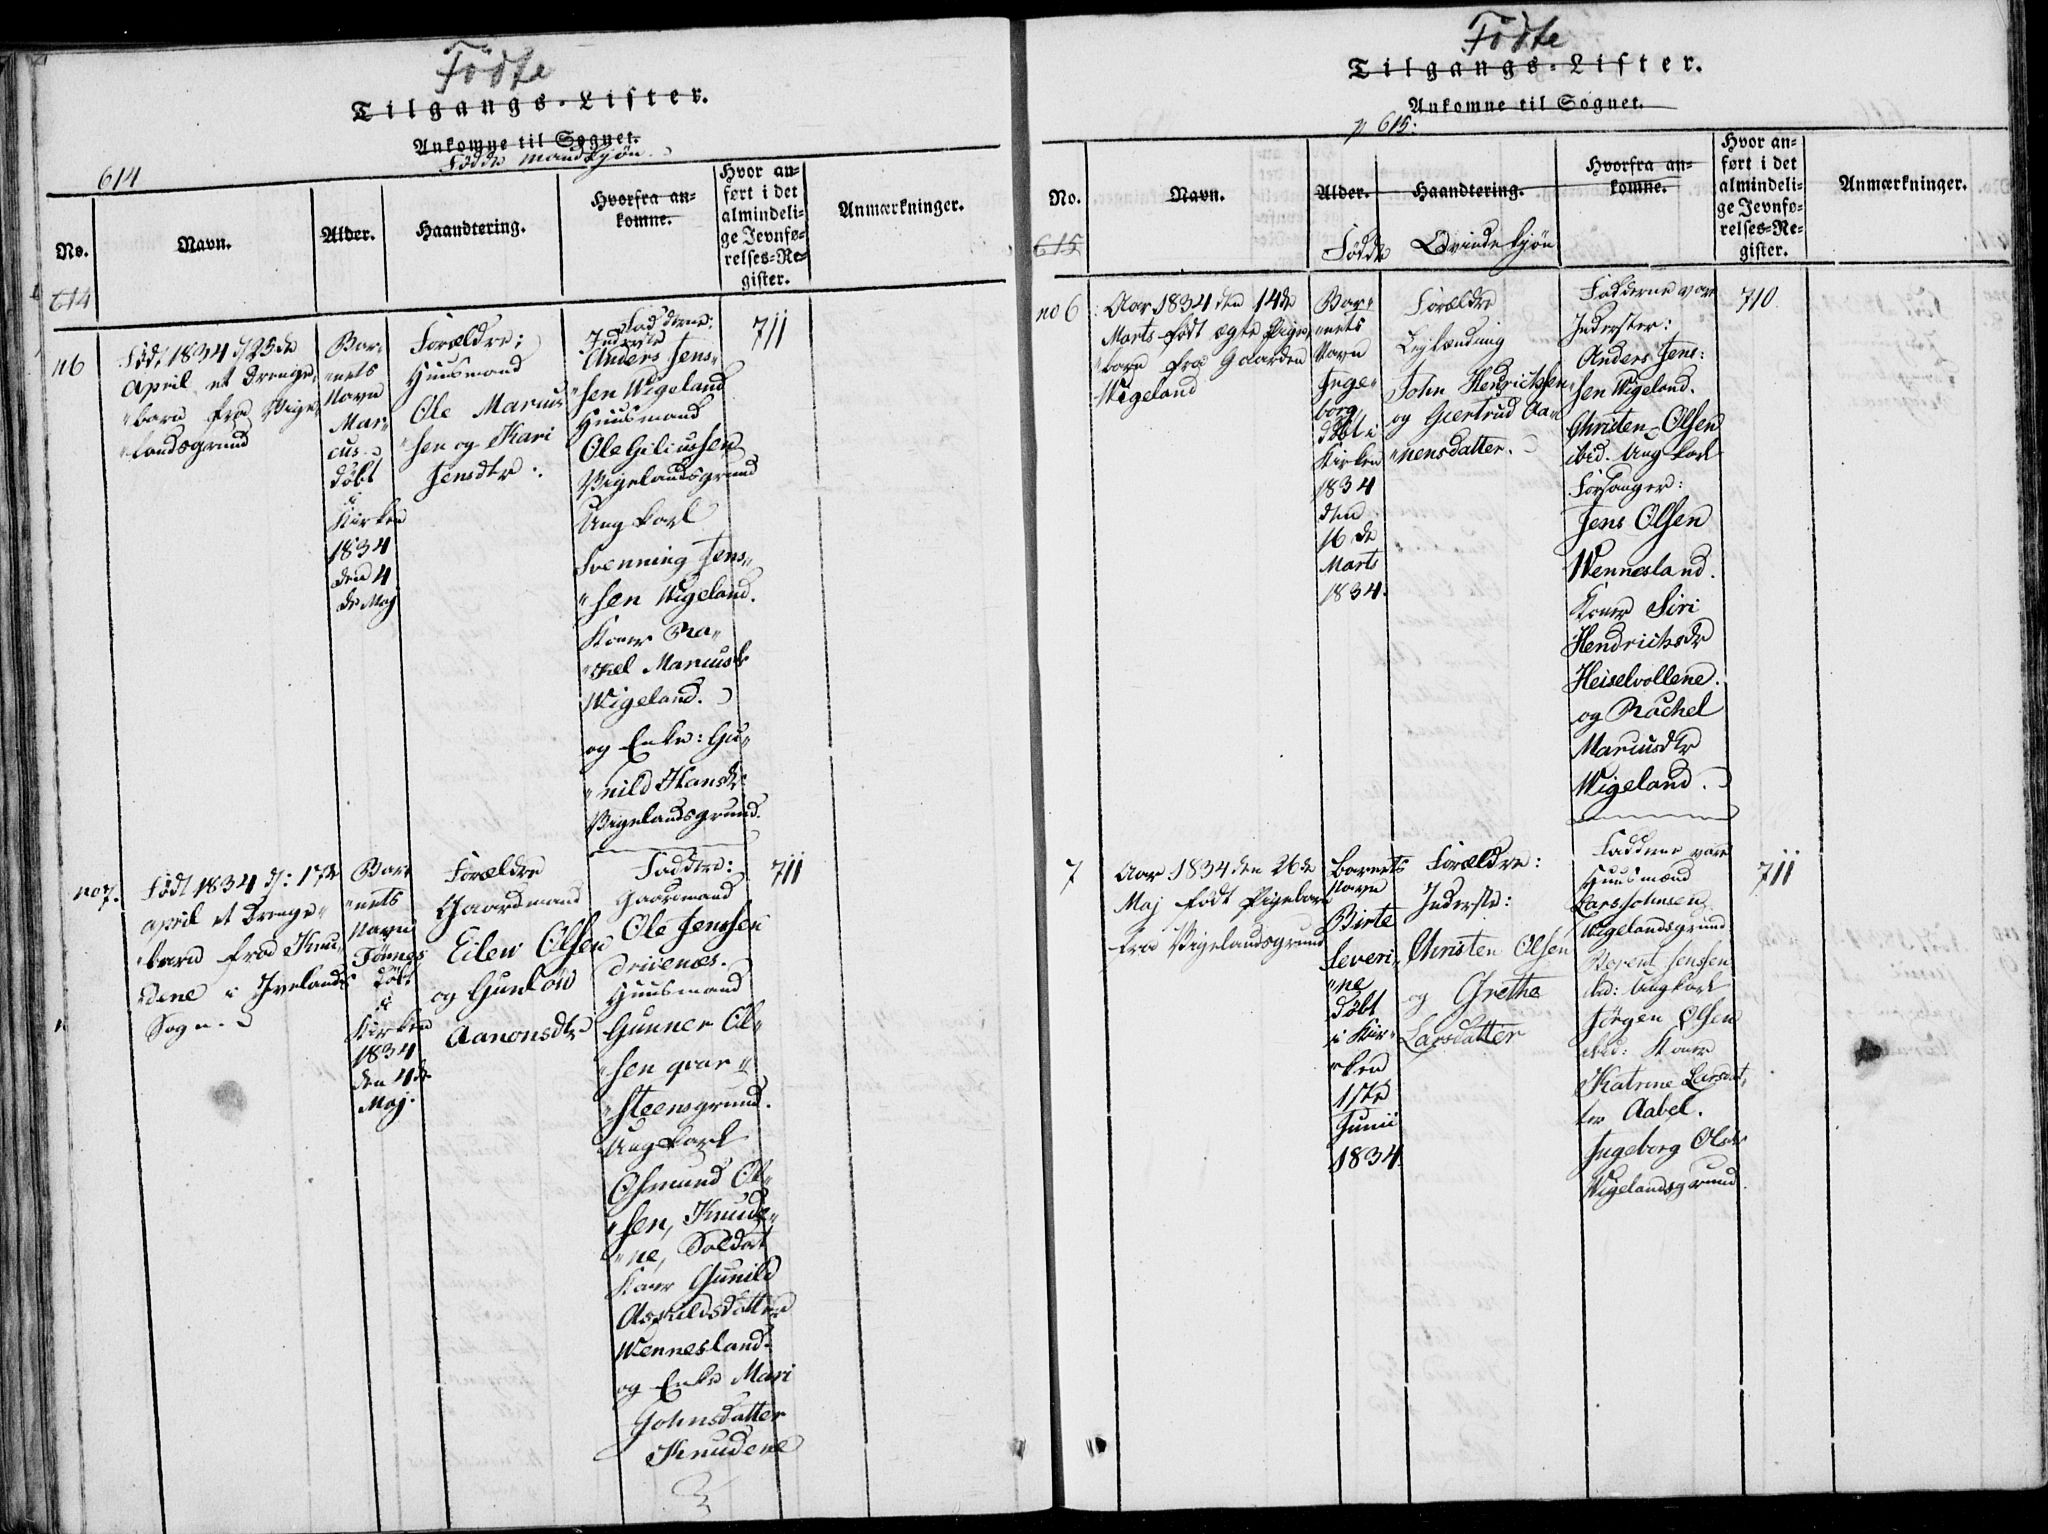 Födte
Tilgangs-Lister.
Ankomne til Sognet.
Födde Mandkjön.
614
No.
Navn.
Alder.
Haandtering.
Hvorfra an=
komne.
Hvor an=
ført i det
almindeli=
ge Jevnfø=
relses=Re=
gister.
Anmærkninger.
614
n6
Födt 1834 d. 25de
April et Drenge„
„barn fra Vige„
„landsgrund
Bar„
„nets
Navn
Mar„
cus.
döbt
i
Kirken
1834
den 4
de Maj
Forældre:
Huusmand
Ole Marius„
„sen og Kari
Jensdtr:
Fadderne:
Inderste
Anders Jens„
„sen Wigeland
Huusmand
Ole Giliussen
Vigelandsgrund
Ungkarl
Svenning Jens„
„sen Wigeland.
Koner Ra„
„kel Mariusdr
Wigeland.
og Enke: Gu„
„nild Hansdr
Vigelandsgrund.
711
no 7.
Födt 1834 d: 17de
April et Drenge„
„barn fra Knu„
dene i Ivelands
Sogn.
Bar
„nets
Navn
Tönnes
döbt
i
Kirken
1834
den 4de
Maj.
Forældre
Gaardmand
Eilev Olsen
og Gunlöv
Aanonsdtr
Faddre:
Gaardmand
Ole Jenssen
Drivenæs.
Huusmand
Gunner Ol„
„sen qvar„
„steensgrund.
Ungkarl
Osmund Ol„
„sen, Knude„
„ne, Soldat
Koner Gunild
Asxuldsdatter
Wennesland.
og Enke Mari
Johnsdatter
Knudene
711
Födte
Tilgangs-Lister.
Ankomne til Sognet.
p 615:
No.
Navn.
Alder.
Haandtering.
Hvorfra an=
komne.
Hvor an=
ført i det
almindeli=
ge Jevnfø=
relses=Re=
gister.
Anmærkninger.
615
Födde Qvindekjön
no 6
Aar 1834 den 14de
Marts födt ægte Pige„
„barn fra Gaarden
Wigeland
Bar„
„nets
Navn
Inge„
borg
döbt i
Kirken
1834
den
16de
Marts
1834.
Forældre
Lejlænding
John Hendrichsen
og Giertrud Aa„
„nensdatter.
Fadderne vare
Inderster:
Anders Jens:
sen Wigeland.
Christen Olsen
ibid. Ungkarl
Forsanger:
Jens Olsen
Wennesland.
Koner Siri
Hendrichsdr
Heiselvollene.
og Rachel
Mariusdtr
Wigeland.
710
7
Aar 1834 den 26de
Maj födt Pigebarn
fra Vigelandsgrund
Barnets
Navn
Birte
Severi„
„ne
Döbt
i Kir„
„ken
1ste
Junii
1834.
Forældre:
Inderste:
Christen Olsen
og Grethe
Larsdatter
Faddrene vare
Huusmænd
Lars Johnsen
Wigelandsgrund
Berent Jenssen
ibid: Ungkarl
Jörgen Olsen
ibid: Koner
Katrine Larsdat„
ter Aabel.
Ingeborg Olsdr
Wigelandsgrund.
711